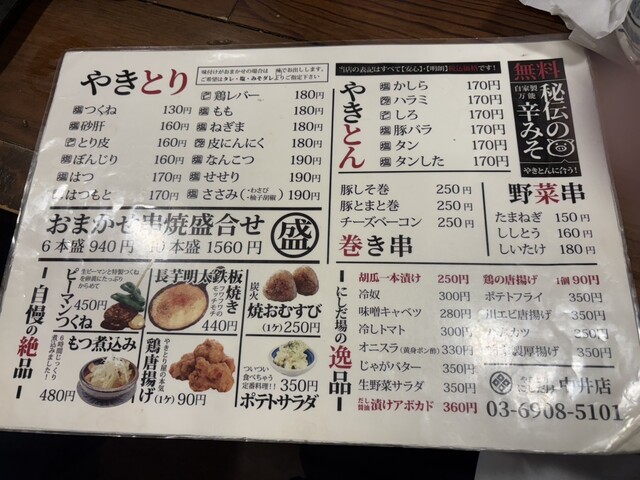 やきとり
味付けがおまかせの場合は でお出しします。
ご希望はタレ・塩・みそダレよりご指定下さい
つくね 130円
砂肝 160円
とり皮 160円
ぼんじり 160円
はつ 170円
はつもと 170円
鶏レバー 180円
もも 180円
ねぎま 180円
皮にんにく 180円
なんこつ 190円
せせり 190円
ささみ(・わさび ・柚子胡椒) 190円
おまかせ串焼盛合せ
6本盛 940円 10本盛 1560円
盛
当店の表記はすべて【安心】・【明朗】税込価格です!
やきとん
かしら 170円
ハラミ 170円
しろ 170円
豚バラ 170円
タン 170円
タンした 170円
無料
自家製
万能
秘伝の
辛みそ
やきとんに合う!
豚しそ巻 250円
豚とまと巻 250円
チーズベーコン 250円
巻き串
野菜串
たまねぎ 150円
ししとう 160円
しいたけ 180円
自慢の絶品
生ピーマンと特製つくね
を卵黄にたっぷり
からめて
ピーマンつくね
450円
長芋明太鉄板焼き
440円
炭火
焼おむすび
(1ケ)250円
もつ煮込み
6時間じっくり
煮込みました!
480円
やきとり屋の本気
鶏唐揚げ
(1ケ)90円
ついつい
食べちゃう
定番料理!!
350円
ポテトサラダ
にしだ場の逸品
胡瓜一本漬け 250円
冷奴 300円
味噌キャベツ 280円
冷しトマト 300円
オニスラ(黄身ポン酢) 330円
じゃがバター 350円
生野菜サラダ 350円
だし醤油漬けアボカド 360円
鶏の唐揚げ 1個90円
ポテトフライ 350円
川エビ唐揚げ 350円
カツ 350円
製厚揚げ 350円
中井店
03-6908-5101